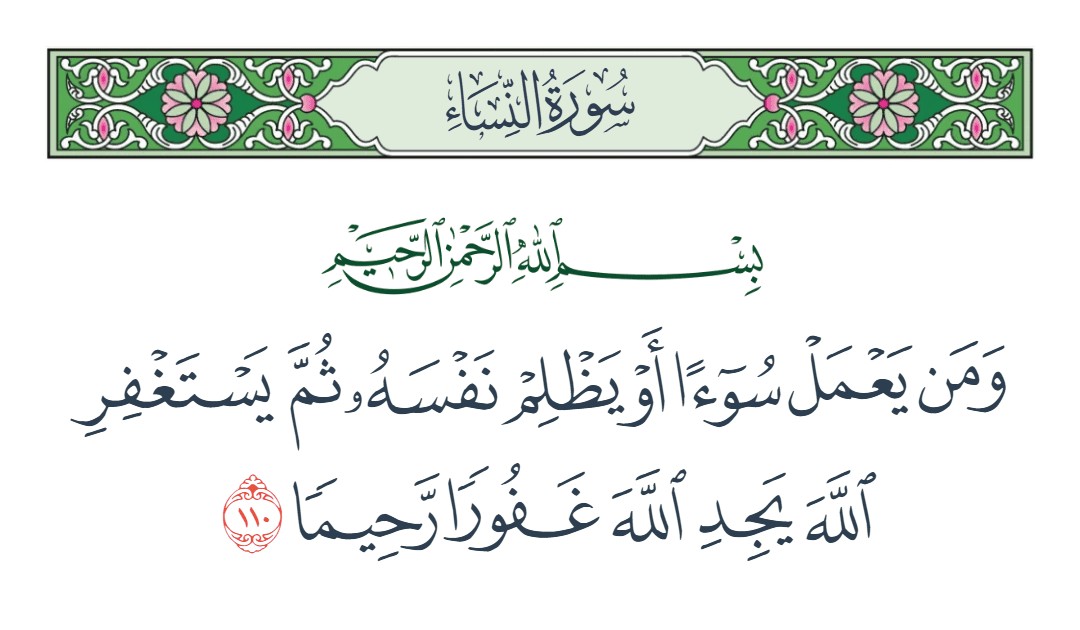 سُورَةُ النِّسَاءِ
بِسْمِ ٱللَّهِ ٱلرَّحْمَٰنِ ٱلرَّحِيمِ
وَمَن يَعْمَلْ سُوٓءًا أَوْ يَظْلِمْ نَفْسَهُۥ ثُمَّ يَسْتَغْفِرِ
ٱللَّهَ يَجِدِ ٱللَّهَ غَفُورًا رَّحِيمًا ١١٠